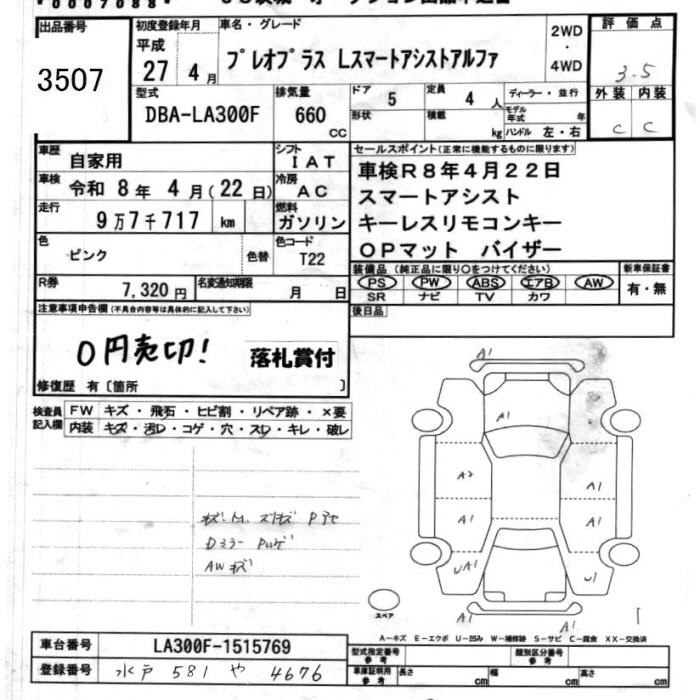 0007088
出品番号 初度登録年月 車名・グレード 2WD・4WD 評価点
3507
平成 27 4月
プレオプラス Lスマートアシストアルファ
3.5
型式 DBA-LA300F
排気量 660 CC
ドア 5
定員 4 人
ディーラー・並行
外装 内装
形状 積載 kg
モデル年式 年
ハンドル 左・右
C C
車歴 自家用
シフト IAT
セールスポイント(正常に機能するものに限ります)
車検 令和 8年 4月(22日)
冷房 AC
車検R8年4月22日
スマートアシスト
走行 9万7千717 km
燃料 ガソリン
キーレスリモコンキー
OPマット バイザー
色 ピンク 色替
色コード T22
装備品(純正品に限り○をつけてください) 新車保証書
PS PW ABS エアB AW
有・無
R券 7,320円
名変通知期限 月 日
SR ナビ TV カワ
注意事項申告欄(不具合内容等は具体的に記入して下さい)
後日品
0円売切!
落札賞付
修復歴 有〔箇所 〕
検査員記入欄
FW キズ・飛石・ヒビ割・リペア跡・×要
内装 キズ・汚レ・コゲ・穴・スレ・キレ・破レ
A1
A1
A2 A1
A1 A1
UA1 U1
A1 A1
Dミラー
AWキズ
スペア
A−キズ E−エクボ U−凹み W−補修跡 S−サビ C−腐食 XX−交換済
車台番号 LA300F-1515769
登録番号 水戸 581 や 4676
型式指定番号 参考
類別区分番号 参考
車庫証明用 参考
長さ cm 幅 cm 高さ cm